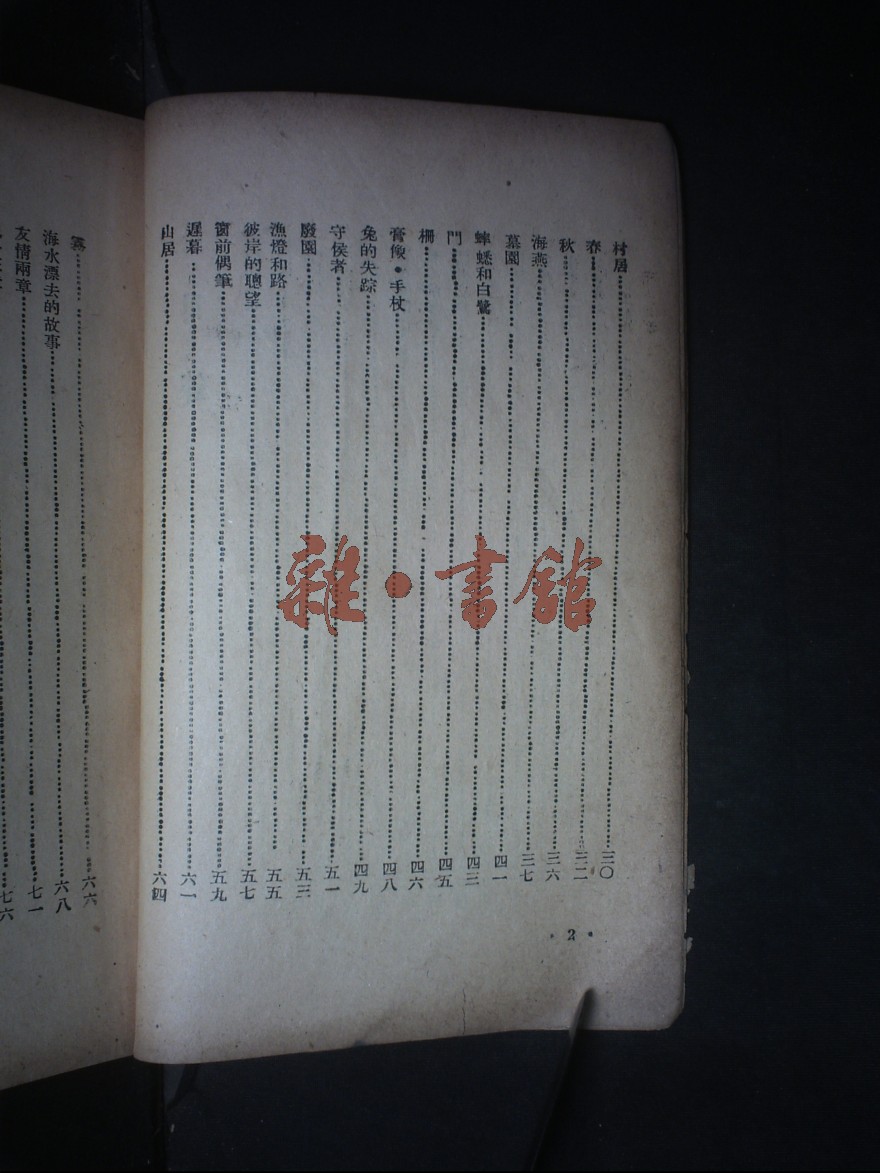 村居……三〇
春……三二
秋……三六
海燕……三七
墓園……四一
蟀蟋和白鷺……四三
門……四五
柵……四六
膏像•手杖……四八
兔的失踪……四九
守侯者……五一
廢園……五三
漁燈和路……五五
彼岸的聰望……五七
窗前偶筆……五九
遲暮……六一
山居……六四
• 2 •
……六六
海水漂去的故事……六八
友情兩章……七一
……七六
雜•書館